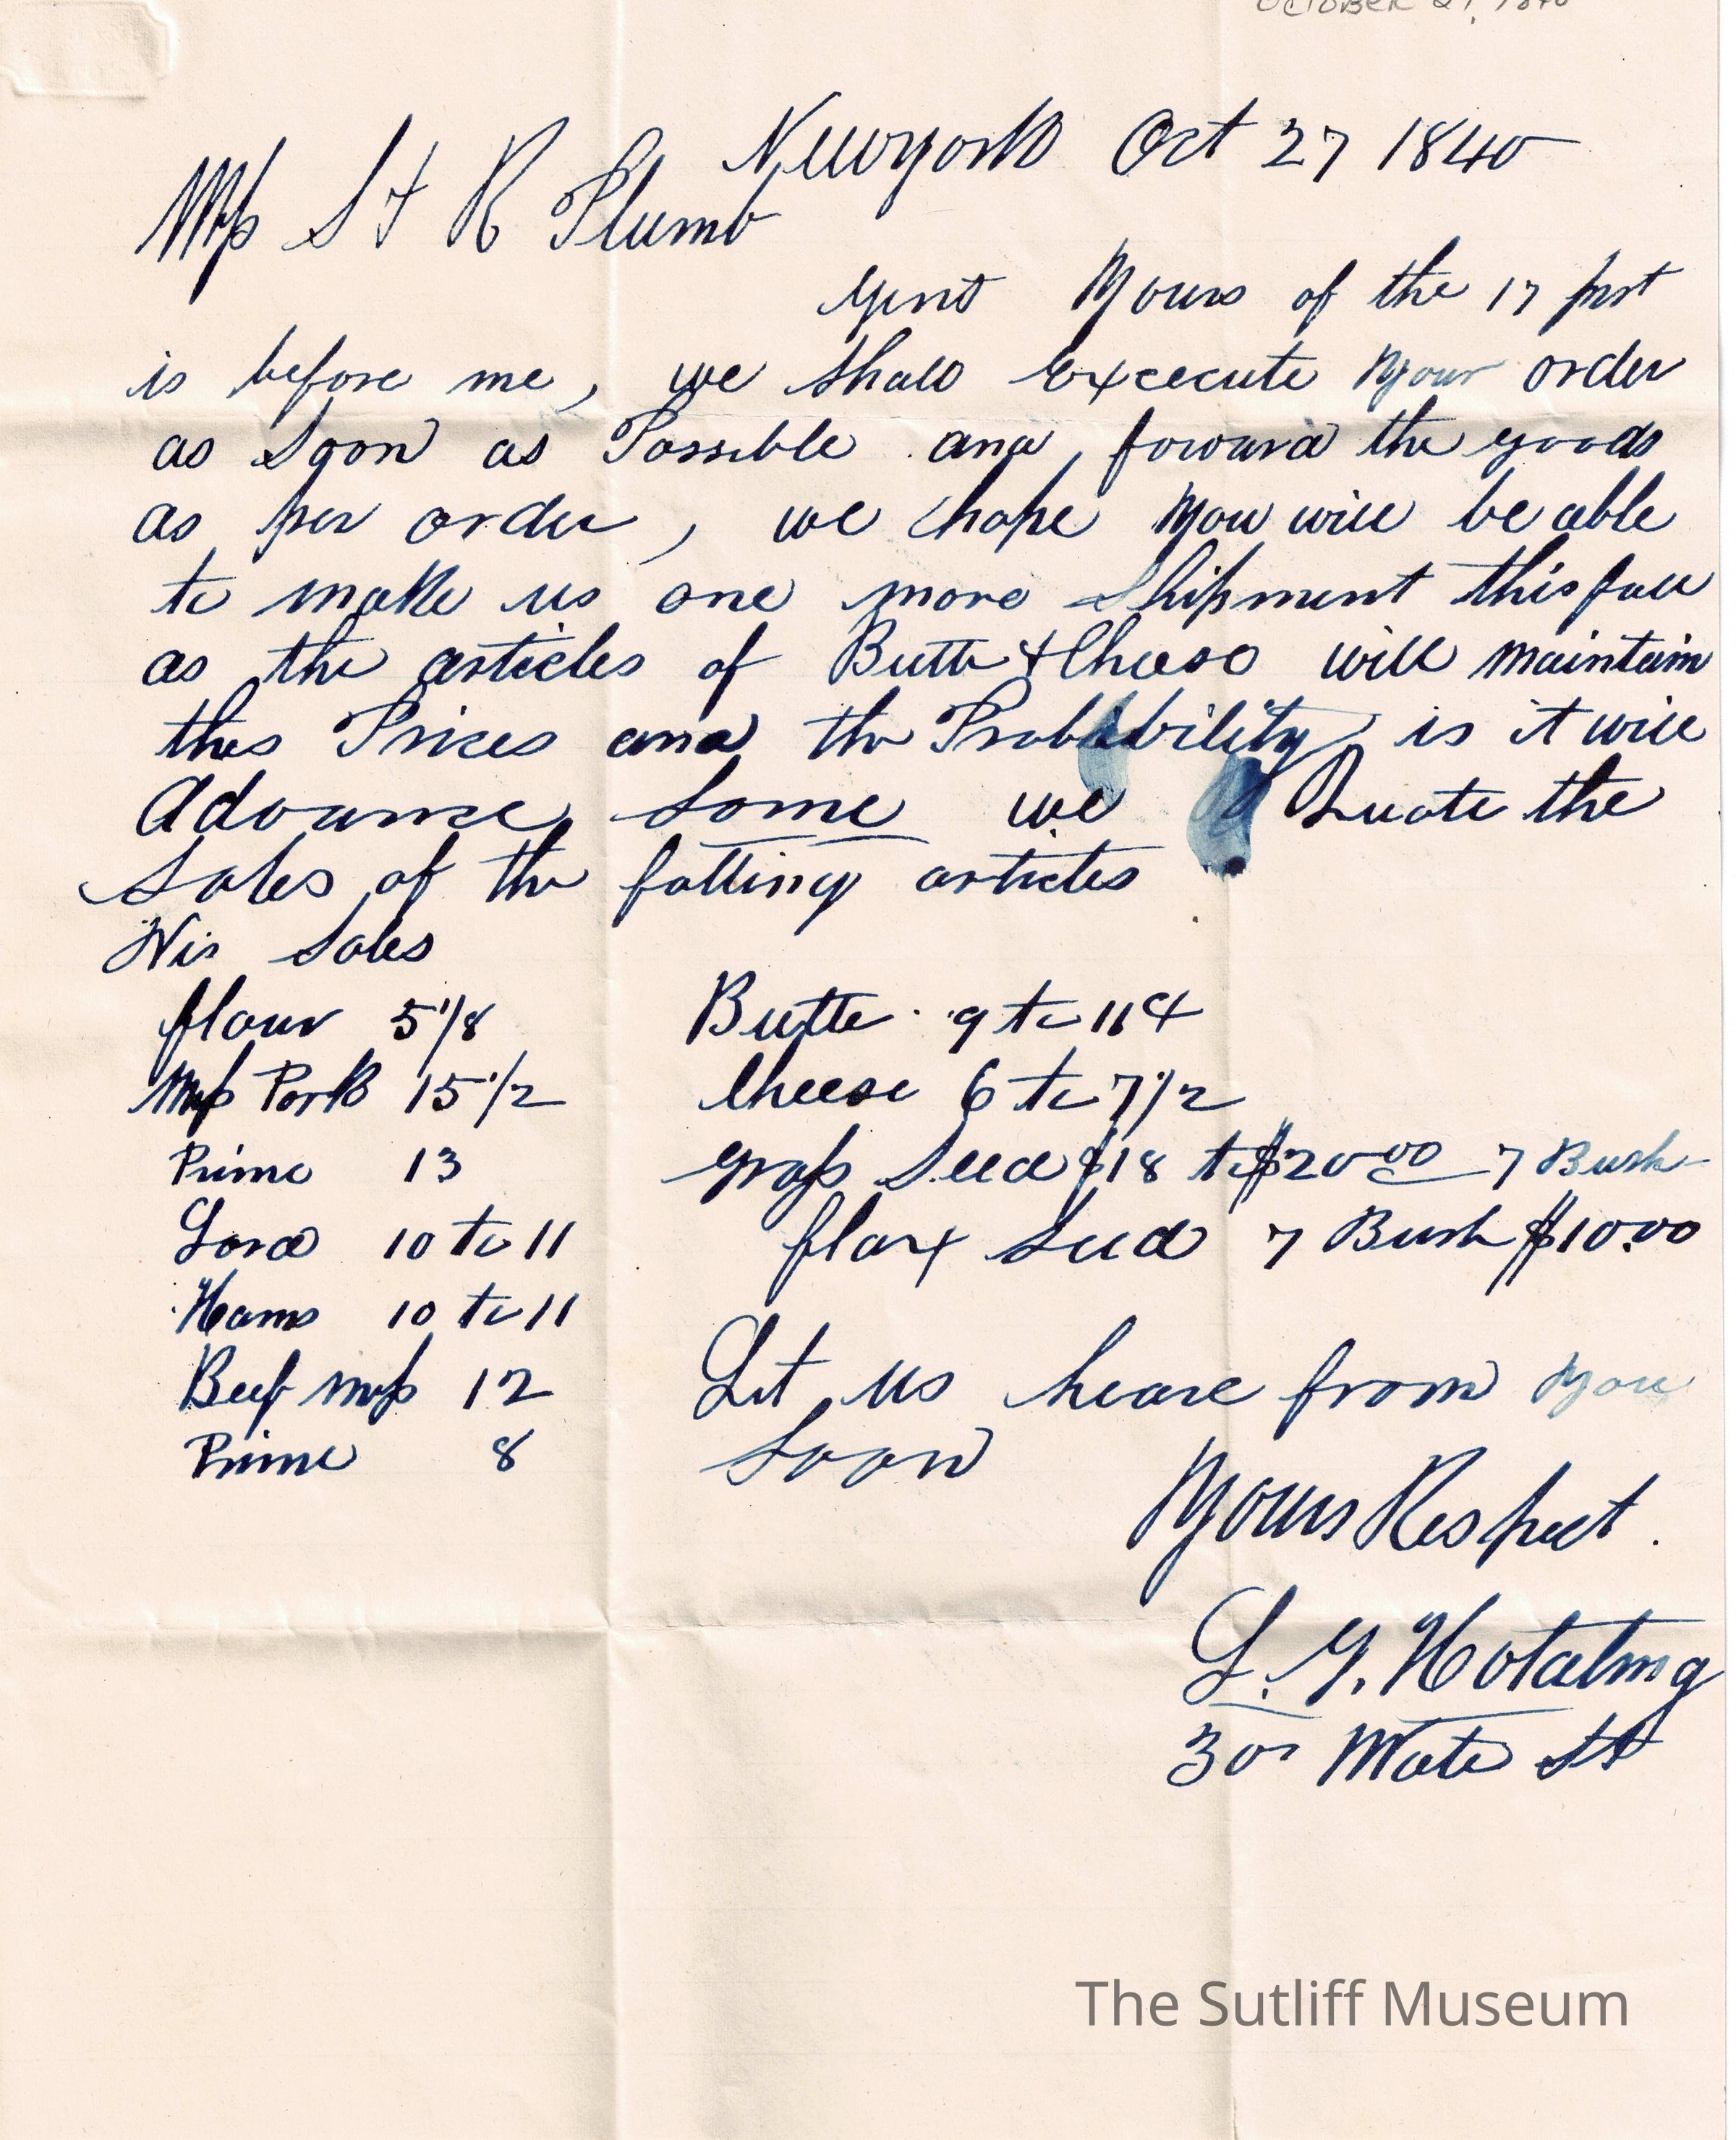 October 27, 1840
Newyork Oct 27 1840
Mss S & R Plumb
Gent Yours of the 17 Inst
is before me, we shall Excecute your order
as Soon as Possible and foward the goods
as per order, we hope you will be able
to make us one more Shipment this fall
as the articles of Butter & Cheese will maintain
thes Prices and the Probibility is it will
Advance some we Quote the
Sales of the folling articles
Vis Sales
flour 5 1/8
Mss Pork 15 1/2
Prime 13
Lard 10 to 11
Hams 10 to 11
Beef Mss 12
Prime 8
Butter 9 to 11 ¢
Cheese 6 to 7 1/2
Grass Seed $18 to $20.00 7 Bush
flax Seed 7 Bush $10.00
Let us heare from you
Soon
Yours Respect.
L. G. Hotaling
Wate St
The Sutliff Museum